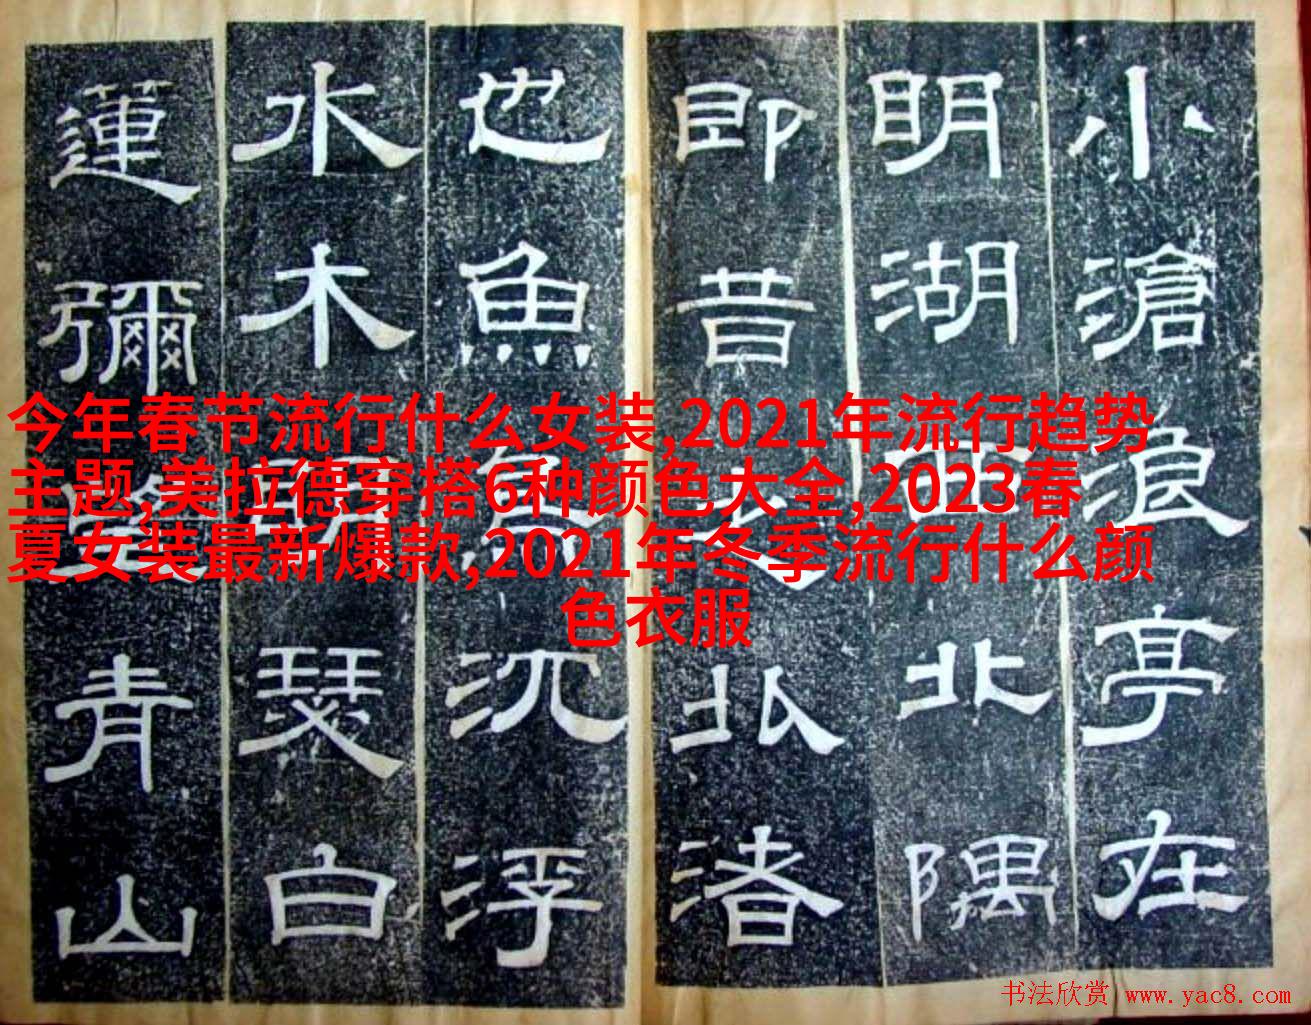 小滄浪亭在
明湖北隅
即昔北渚
也魚鳥沉浮
水木明瑟白
蓮彌望青山
今年春节流行什么女装,2021年流行趋势
主题,美拉德穿搭6种颜色大全,2023春
夏女装最新爆款,2021年冬季流行什么颜
色衣服
书法欣赏 www.yac8.com